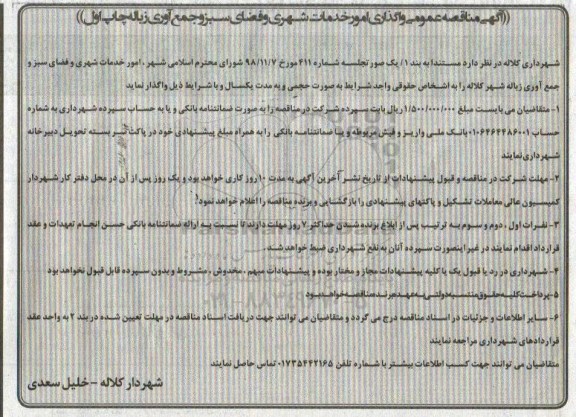 ((آگهی مناقصه عمومی واگذاری امور خدمات شهری و فضای سبز و جمع آوری زباله چاپ اول))
شهرداری کلاله در نظر دارد مستندا به بند ۱/ یک صورتجلسه شماره ۴۱۱ مورخ ۹۸/۱۱/۷ شورای محترم اسلامی شهر، امور خدمات شهری و فضای سبز و
جمع آوری زباله شهر کلاله را به اشخاص حقوقی واجد شرایط به صورت حجمی و به مدت یکسال و با شرایط ذیل واگذار نماید
۱- متقاضیان می بایست مبلغ ۱/۵۰۰/۰۰۰/۰۰۰ ریال بابت سپرده شرکت در مناقصه را به صورت ضمانتنامه بانکی و یا به حساب سپرده شهرداری به شماره
حساب ۰۱۰۶۴۶۴۴۸۶۰۰۱ بانک ملی واریز و فیش مربوطه و یا ضمانتنامه بانکی را به همراه مبلغ پیشنهادی خود در پاکت در بسته تحویل دبیرخانه
شهرداری نمایند
۲- مهلت شرکت در مناقصه و قبول پیشنهادات از تاریخ نشر آخرین آگهی به مدت ۱۰ روز کاری خواهد بود و یک روز پس از آن در محل دفتر کار شهردار
کمیسیون عالی معاملات تشکیل و پاکتهای پیشنهادی را بازگشایی و برنده مناقصه را اعلام خواهد نمود.
۳- نفرات اول، دوم و سوم به ترتیب پس از ابلاغ برنده شدن حداکثر ۷ روز مهلت دارند تا نسبت به ارائه ضمانتنامه بانکی حسن انجام تعهدات و عقد
قرارداد اقدام نمایند در غیر اینصورت سپرده آنان به نفع شهرداری ضبط خواهد شد.
۴- شهرداری در رد یا قبول یک یا کلیه پیشنهادات مجاز و مختار بوده و پیشنهادات مبهم، مخدوش، مشروط و بدون سپرده قابل قبول نخواهد بود
۵- پرداخت کلیه حقوق منتسبه دولتی به عهده برنده مناقصه خواهد بود
۶- سایر اطلاعات و جزئیات در اسناد مناقصه درج می گردد و متقاضیان می توانند جهت دریافت اسناد مناقصه در مهلت تعیین شده در بند ۲ به واحد عقد
قراردادهای شهرداری مراجعه نمایند
متقاضیان می توانند جهت کسب اطلاعات بیشتر با شماره تلفن ۰۱۷۳۵۴۴۲۱۶۵ تماس حاصل نمایند
شهردار کلاله - خلیل سعدی